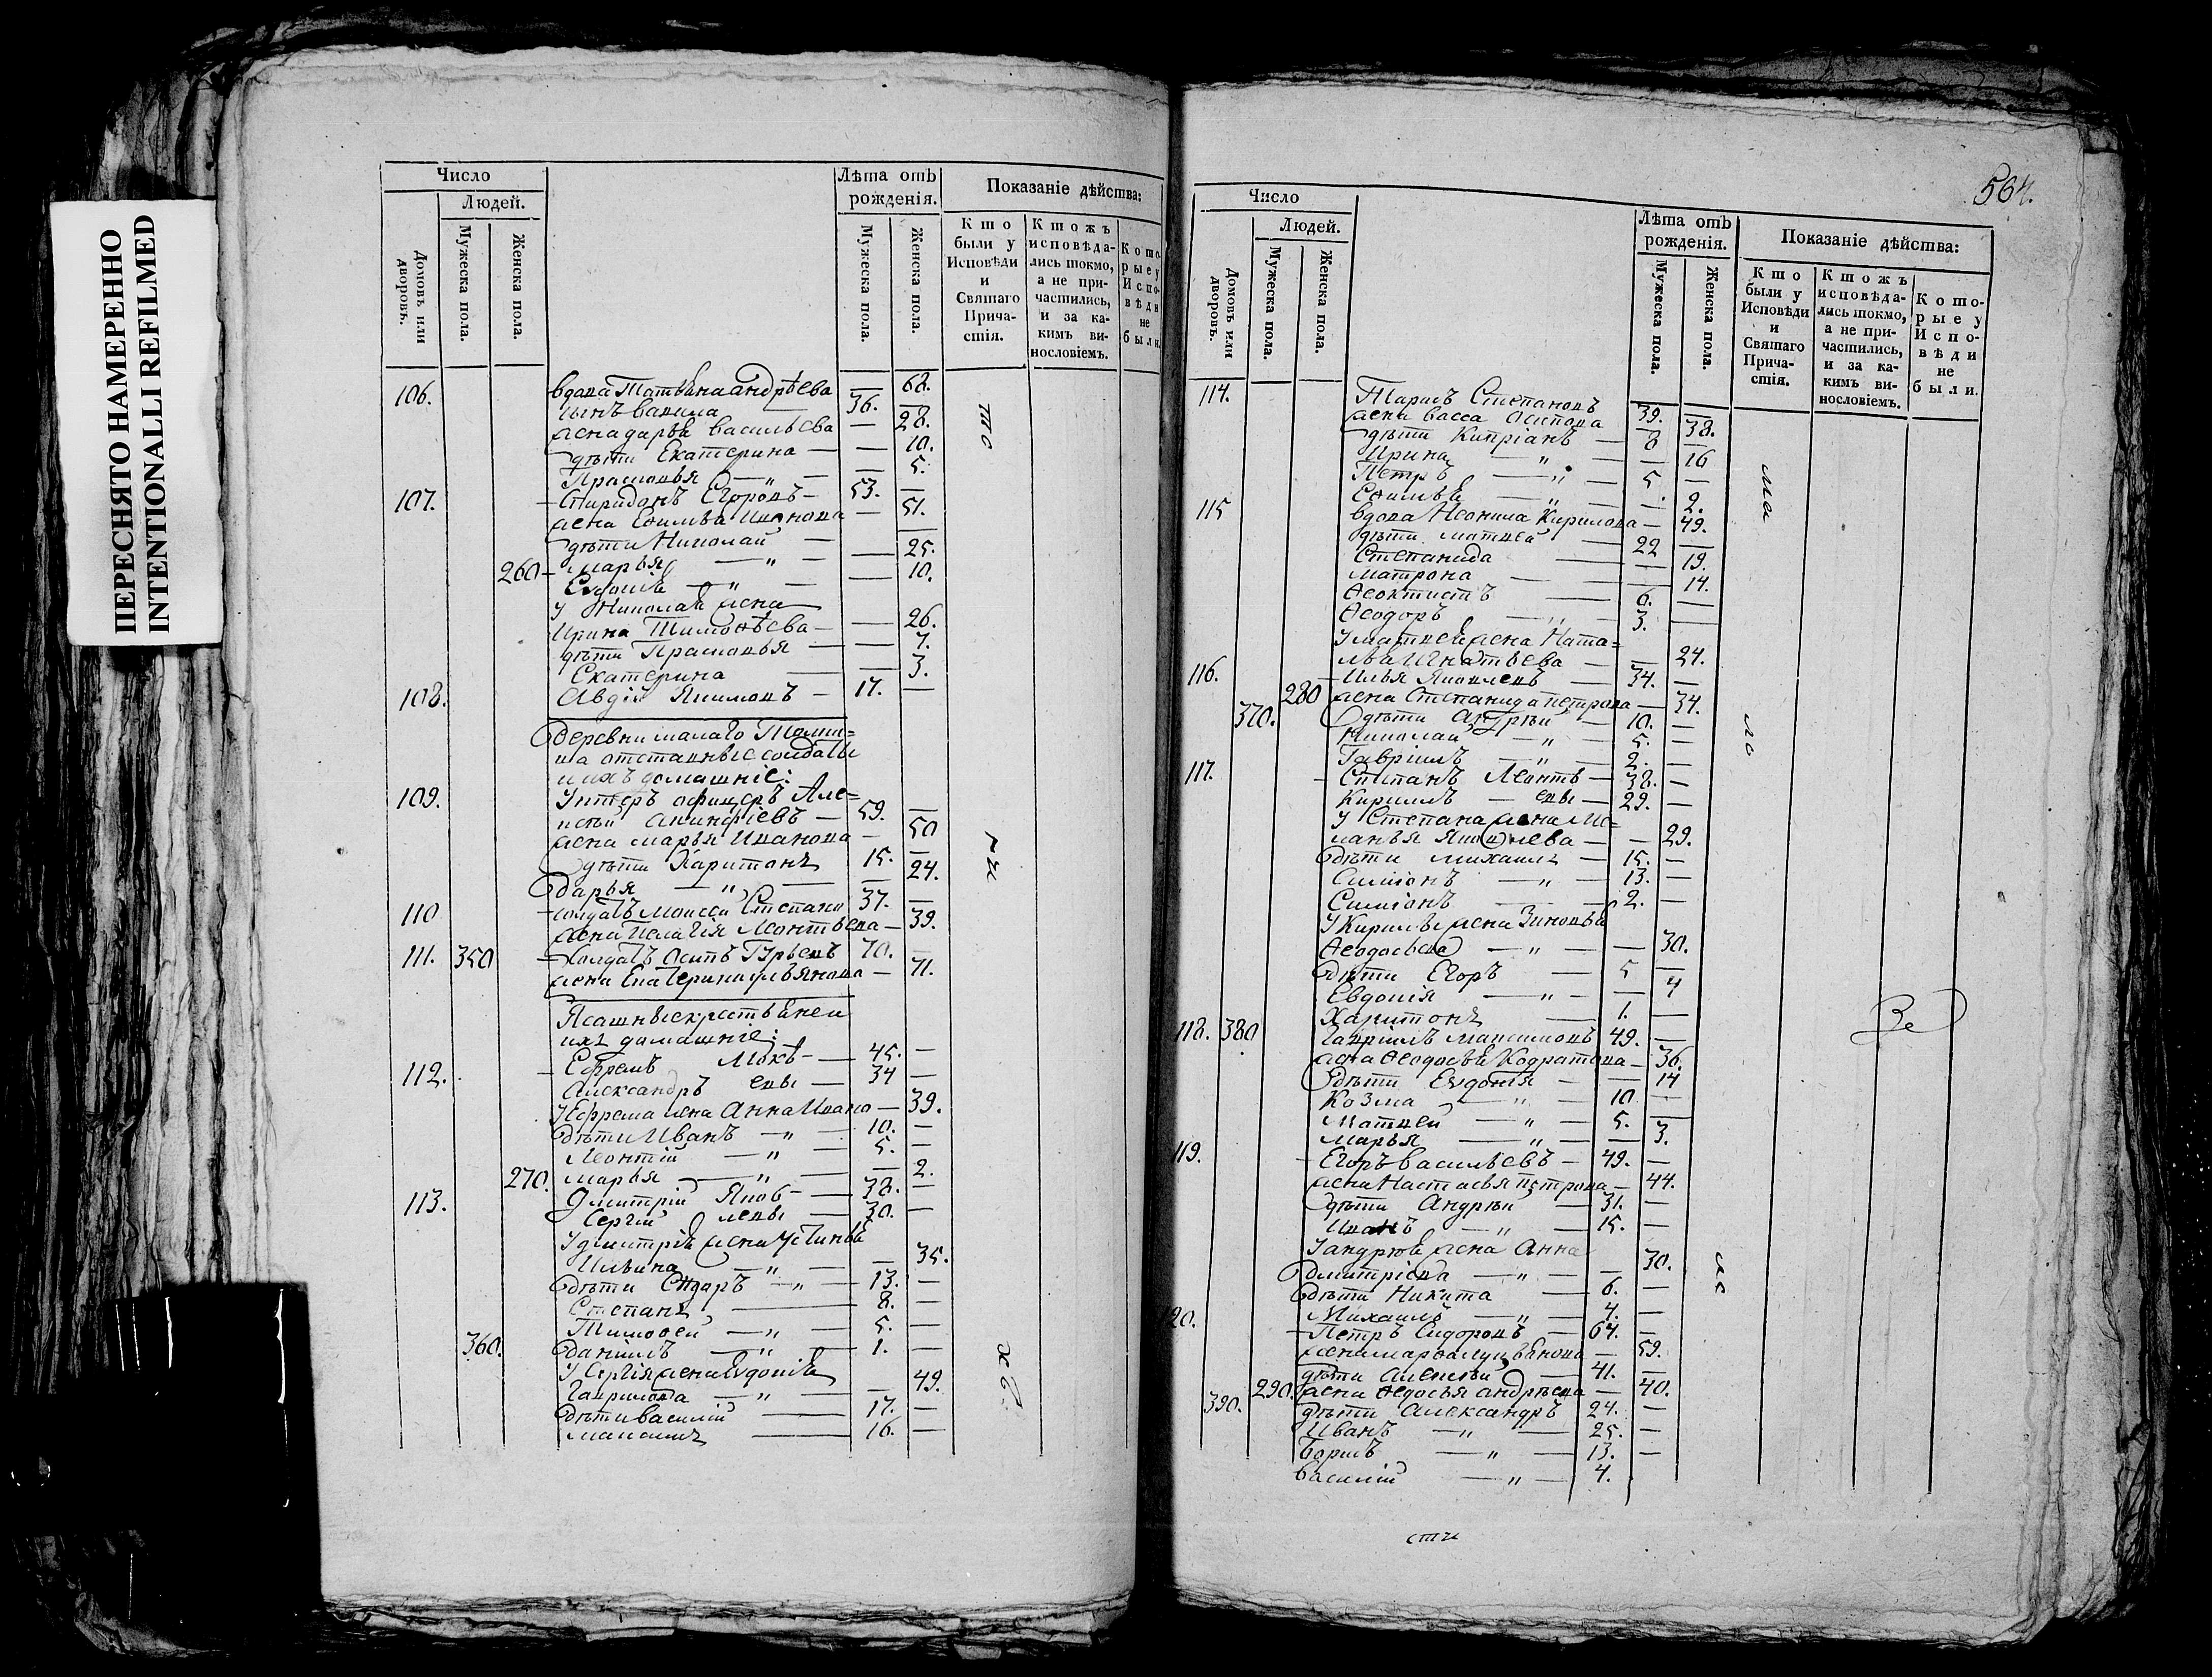 ПЕРЕСНЯТО НАМЕРЕННО
INTENTIONALLI REFILMED
Число
Людей.
Домовъ или дворовъ.
Мужеска пола.
Женска пола.
Лѣта отъ рожденія.
Мужеска пола.
Женска пола.
Показаніе дѣйства:
Кто были у Исповѣди и Святаго Прича- стія.
Ктожъ исповѣда- лись токмо, а не при- частились, и за ка- кимъ ви- нословіемъ.
Кото- рые у Испо- вѣди не были.
106. вдова Татьяна андрѣева — 68.
сынъ вавила 36. —
жена дарья васильева — 28.
дѣти Екатерина — — 10.
Прасковья — „ — — 5.
107. Спиридонъ Егоровъ — 53. —
жена Софилья Иванова — 51.
дѣти Николай —
260 Марья — „ — — 25.
Евдокія — „ — — 10.
У Николая жена
Ирина Тимоѳѣева — — 26.
дѣти Прасковья — — 7.
Екатерина — — 3.
108. Авдій Якимовъ — 17. —
Деревни малаго Толки=
ша отставные солдаты
и ихъ домашніе:
109. Унтеръ офицеръ Але=
ксѣй — 59. —
жена марья Иванова — 50
дѣти Харитонъ 15. —
Дарья — „ — — 24.
110 солдатъ Моисей Степано 37. —
жена Пелагія Леонтьева — 39.
111. 350 солдатъ Осипъ Гурьевъ 70. —
жена Екатерина ульянова — 71.
Ясашные крестьяне и
ихъ домашніе:
112. Ефремъ Мокѣ — 45. —
Александръ евы — 34 —
У Ефрема жена Анна Ивано — 39.
дѣти Иванъ — „ — 10. —
Леонтій — „ — 5. —
270. Марья — „ — — 2.
113. Дмитрій Яков — 38. —
Сергій левы — 30. —
У дмитрія жена Устинья
Ильина — „ — — 35.
дѣти Сидоръ — „ — 13. —
Степанъ — 8. —
Тимоѳей — „ — 5. —
360. Даніилъ — „ — 1. —
У Сергія жена Евдокія
Гаврилова — „ — — 49.
дѣти Василій — 17. —
Максимъ — 16. —
564.
Число
Людей.
Домовъ или дворовъ.
Мужеска пола.
Женска пола.
Лѣта отъ рожденія.
Мужеска пола.
Женска пола.
Показаніе дѣйства:
Кто были у Исповѣди и Святаго Прича- стія.
Ктожъ исповѣда- лись токмо, а не при- частились, и за ка- кимъ ви- нословіемъ.
Кото- рые у Испо- вѣди не были.
114. Степановъ 39. —
жена васса Осипова — 38.
дѣти Кипріанъ — 8 —
Ирина — „ — — 16
Петръ — „ — 5 —
— „ — — 2.
115 вдова Неонила Кирилова — 49.
дѣти матвей — 22 —
Степанида — — 19.
Матрона — — 14.
Ѳеоктистъ — 6. —
Ѳеодоръ — „ — 3. —
У матвея жена Ната=
лья Игнатьева — — 24.
116. Илья Яковлевъ — 34. —
280 жена Степанида петрова — 34.
370. дѣти Андрѣй — 10. —
Николай — „ — 5. —
Гавріилъ — „ — 2. —
117. Степанъ Леонть — 38. —
Кирилъ — евы — 29. —
У Степана жена Ме=
ланья Яковлева — — 29.
дѣти михаилъ — 15. —
Симіонъ — „ — 13. —
Симіонъ — 2. —
У Кирилы жена Зиновья
Ѳеодосьева — „ — — 30.
дѣти Егоръ — 5 —
Евдокія — „ — — 4
Харитонъ — 1. —
118. 380 Гавріилъ максимовъ 49. —
жена Ѳеодосья Кодратова — 36.
дѣти Евдокія — — 14
Козма — „ — 10 —
Матвей — „ — 5. —
Марья — „ — — 3.
119. Егоръ васильевъ — 49. —
жена Настасья петрова — 44.
дѣти Андрѣй — 31. —
Иванъ — „ — 15. —
У андрея жена Анна
дмитріева — „ — — 30.
дѣти Никита — 6. —
Михаилъ — „ — 4. —
20. Петръ Сидоровъ — 64. —
жена марѳа — 59.
дѣти Алексѣй — 41. —
290. жена Ѳедосья андрѣева — 40.
390. дѣти Александръ 24. —
Иванъ — „ — 25. —
Борисъ — „ — 13. —
Василій — „ — 4.